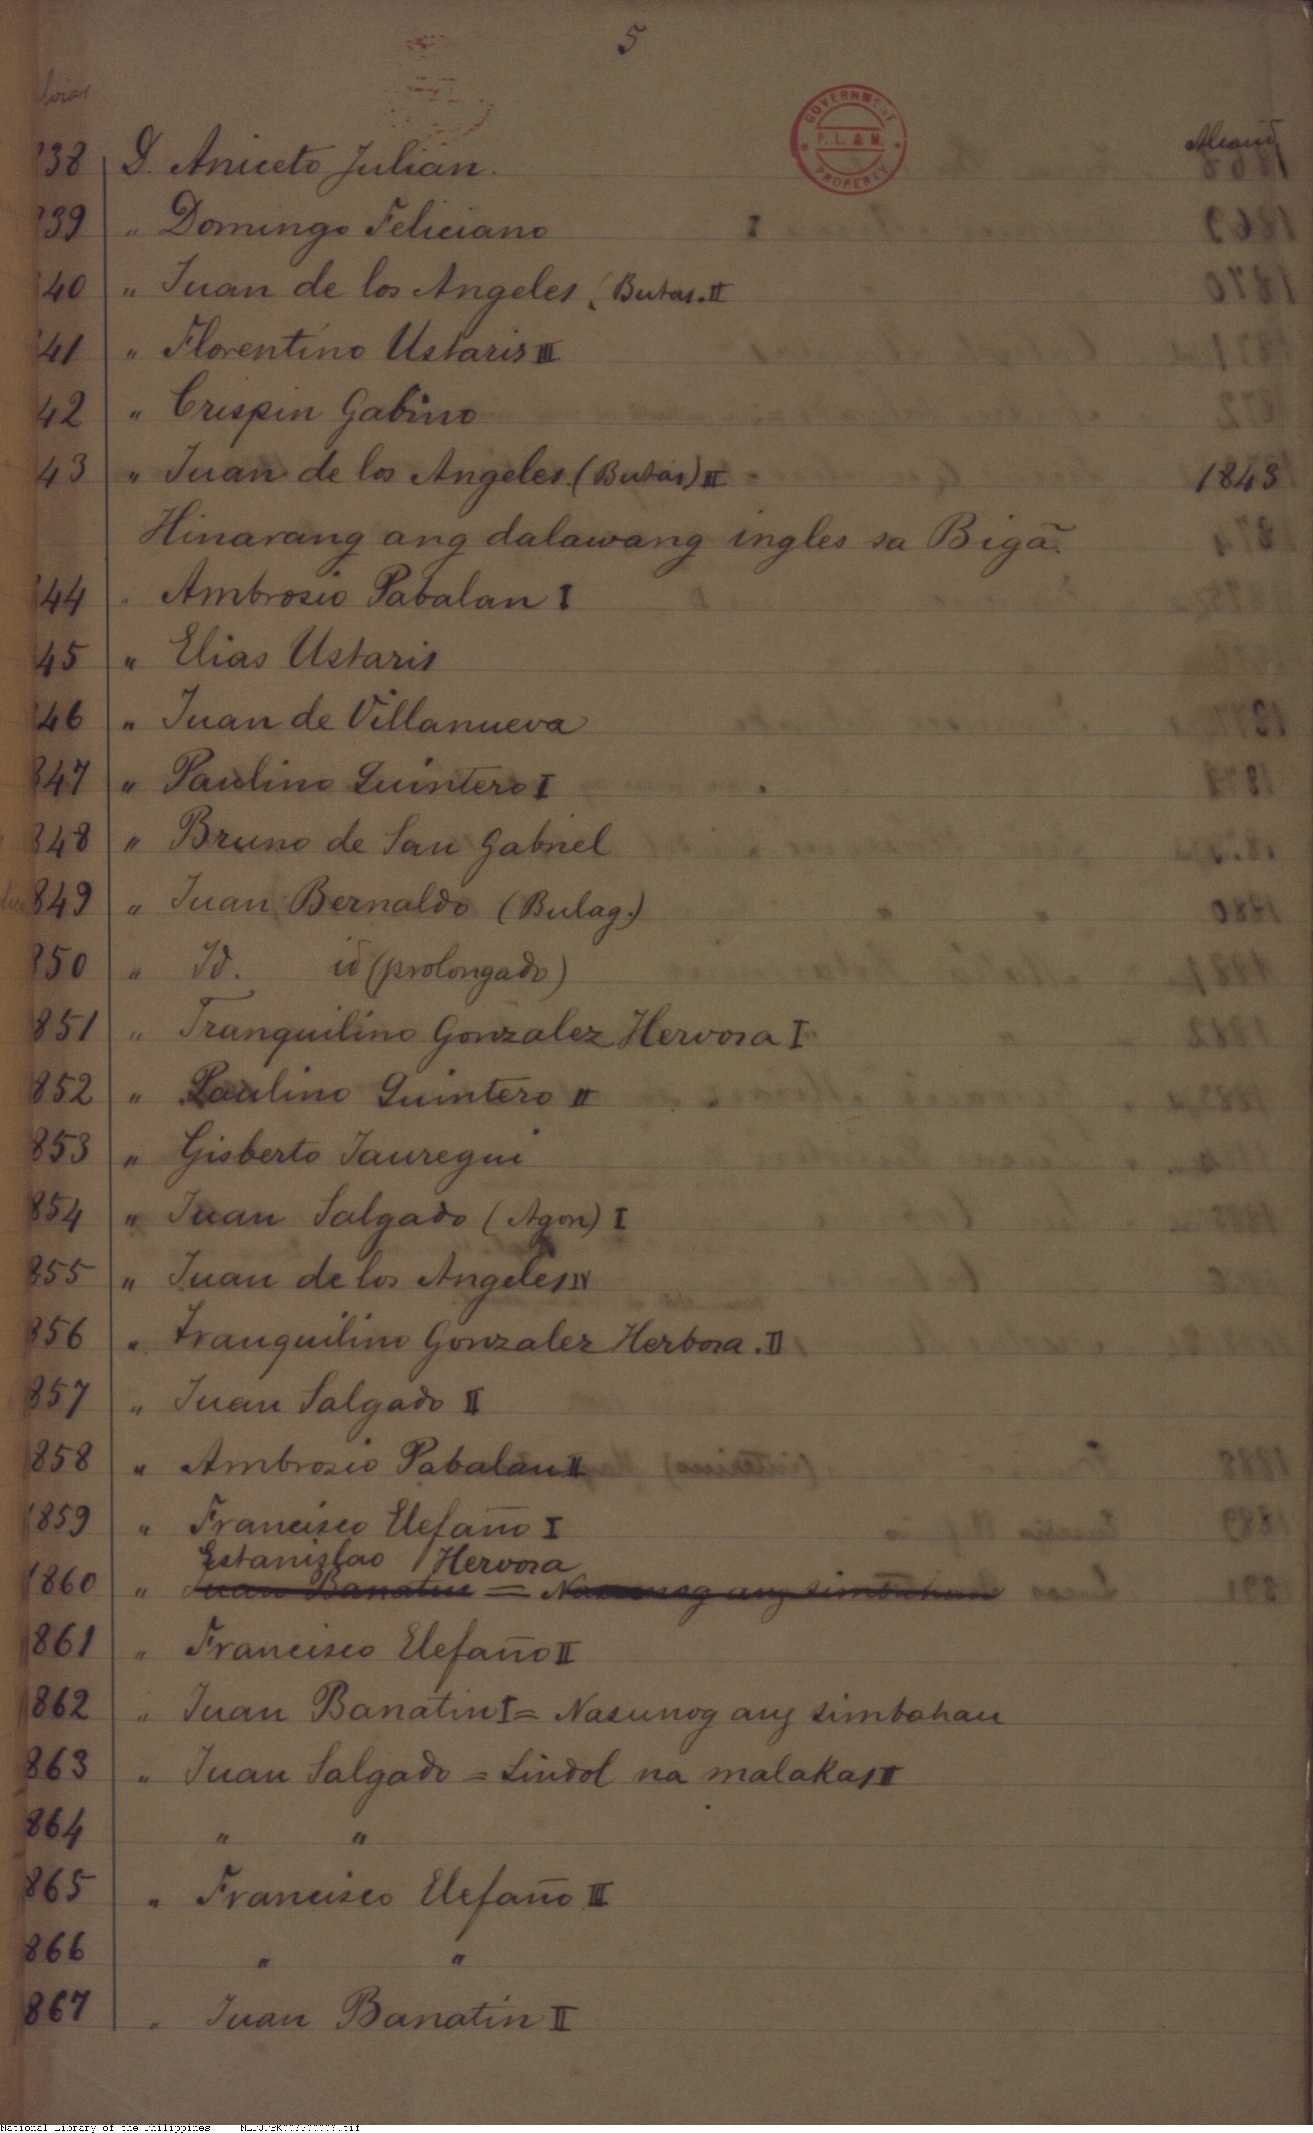 5
GOVERNMENT
P. L. & M.
PROPERTY
38 D. Aniceto Julian.
39 " Domingo Feliciano I
40 " Juan de los Angeles (Butas. II
41 " Florentino Ustaris III
42 " Crispin Gabino
43 " Juan de los Angeles. (Butas) III 1843
Hinarang ang dalawang ingles sa Bigã.
44 " Ambrosio Pabalan I
45 " Elias Ustaris
46 " Juan de Villanueva
847 " Paulino Quintero I
848 " Bruno de San Gabriel
849 " Juan Bernaldo (Bulag.)
850 " Id. id (prolongado)
851 " Tranquilino Gonzalez Hervosa I
852 " Paulino Quintero II
853 " Gisberto Jauregui
854 " Juan Salgado (Agon) I
855 " Juan de los Angeles IV
856 " Tranquilino Gonzalez Herbosa. II
857 " Juan Salgado II
858 " Ambrosio Pabalan II
1859 " Francisco Elefaño I
Estanislao Hervosa
1860 " Juan Banatin = Nasunog ang simbahan
1861 " Francisco Elefaño II
862 " Juan Banatin I = Nasunog ang simbahan
863 " Juan Salgado = Lindol na malakas II
864 " "
865 " Francisco Elefaño III
866 " "
867 " Juan Banatin II
National Library of the Philippines